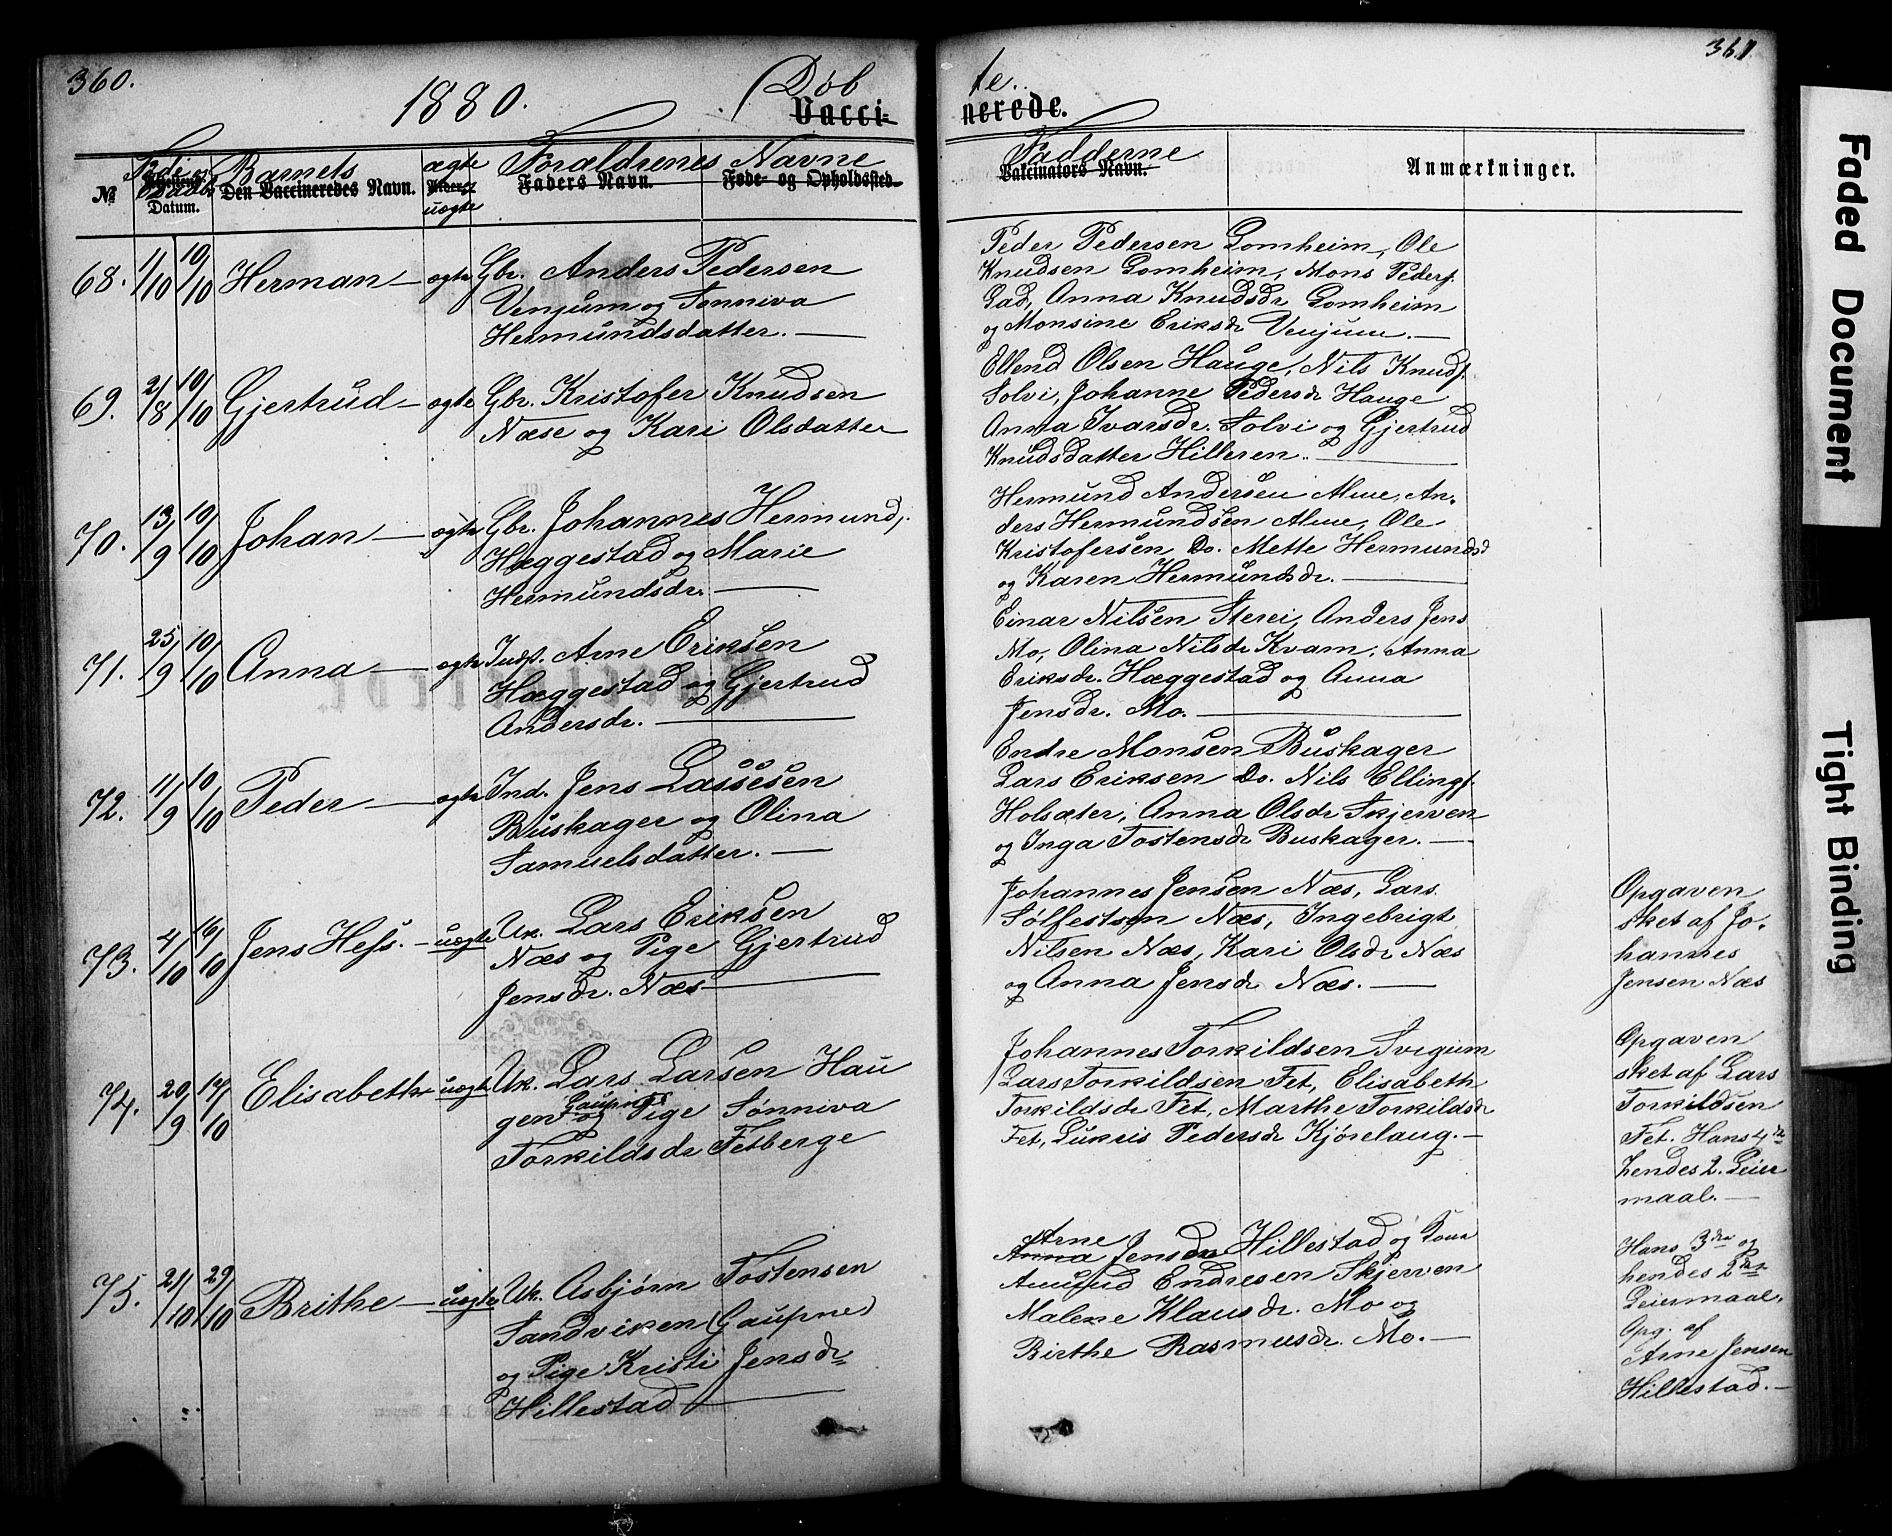 360.
1880.
Døb
Vacci-
№
Føds. og
Datum.
Barnets
Den Vaccineredes Navn.
ægte
uægte
Forældrenes Navne
Faders Navn.
Føde- og Opholdssted.
68. 1/10 10/10 Herman — ægte Gbr. Anders Pedersen
Venjum og Sønniva
Hermundsdatter. —
69. 2/8 10/10 Gjertrud — ægte Gbr. Kristofer Knudsen
Næse og Kari Olsdatter
70. 13/9 10/10 Johan — ægte Gbr. Johannes Hermunds.
Hæggestad og Marie
Hermundsdr. —
71. 25/9 10/10 Anna — ægte Indst. Arne Eriksen
Hæggestad og Gjertrud
Andersdr. —
72. 11/9 10/10 Peder — ægte Ind. Jens Lassesen
Buskager og Olina
Samuelsdatter. —
73. 4/10 16/10 Jens Hess. — uægte Uk. Lars Eriksen
Næs og Pige Gjertrud
Jensdr. Næs —
74. 20/9 17/10 Elisabeth uægte Uk. Lars Larsen Hau
gen Gaupne og Pige Sønniva
Torkildsdr Fetberge
75. 21/10 29/10 Brithe — uægte Uk. Asbjørn Tostensen
Sandviken (Gaupne)
og Pige Kristi Jensdr
Hillestad —
361.
te.
nerede.
Fadderne
Vakcinators Navn.
Anmærkninger.
Peder Pedersen Gomheim, Ole
Knudsen Gomheim, Mons Peders.
Gad, Anna Knudsdr Gomheim
og Monsine Eriksdr Venjum. —
Ellend Olsen Hauge, Nils Knuds.
Solvi, Johanne Pedersdr Hauge
Anna Ivarsdr. Solvi og Gjertrud
Knudsdatter Hilleren. —
Hermund Andersen Alme, An-
ders Hermundsen Alme, Ole
Kristofersen Do. Mette Hermundsd
og Karen Hermundsdr. —
Einar Nilsen Sterei, Anders Jens
Mo, Olina Nilsdr Kvam, Anna
Eriksdr. Hæggestad og Anna
Jensdr. Mo. —
Endre Monsen Buskager
Lars Eriksen Do. Nils Ellings.
Holsæter, Anna Olsdr Skjerven
og Inga Tostensdr Buskager. —
Johannes Jensen Næs, Lars
Sølfestsen Næs, Ingebrigt
Nilsen Næs, Kari Olsdr Næs
og Anna Jensdr Næs. —
Opgaven
sket af Jo-
hannes
Jensen Næs
Johannes Torkildsen Svegum
Lars Torkildsen Fet, Elisabeth
Torkildsdr Fet, Marthe Torkildsdr
Fet, Lukris Pedersdr Kjørelaug. —
Opgaven
sket af Lars
Torkildsen
Fet. Hans 4de
hendes 2. Leier
maal. —
Arne
Anna Jensen Hillestad og Kona
Endresen Skjerven
Malene Klausdr. Mo og
Birthe Rasmusdr. Mo. —
Hans 3die og
hendes 2det
Leiermaal,
Opg. af
Arne Jensen
Hillestad. —
Faded Document
Tight Binding